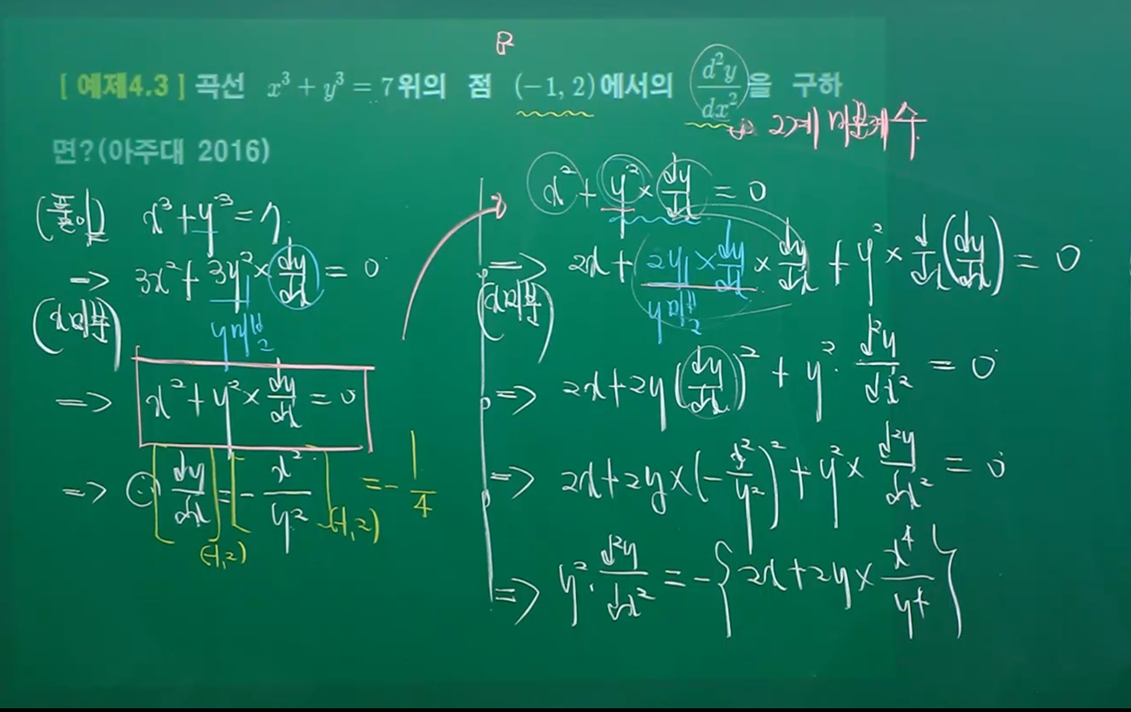 [ 예제4.3 ] 곡선 x³ + y³ = 7위의 점 (-1, 2)에서의 d²y/dx²을 구하
면?(아주대 2016)
2계 미분계수
(풀이) x³ + y³ = 7
=> 3x² + 3y² × dy/dx = 0
(x미분)
y미분
=> x² + y² × dy/dx = 0
=> [dy/dx](-1,2) = [-x²/y²](-1,2) = -1/4
x² + y² × dy/dx = 0
=> 2x + 2y × dy/dx × dy/dx + y² × d/dx(dy/dx) = 0
(x미분)
y미분
=> 2x + 2y(dy/dx)² + y² · d²y/dx² = 0
=> 2x + 2y × (-x²/y²)² + y² × d²y/dx² = 0
=> y² · d²y/dx² = -{2x + 2y × x⁴/y⁴}